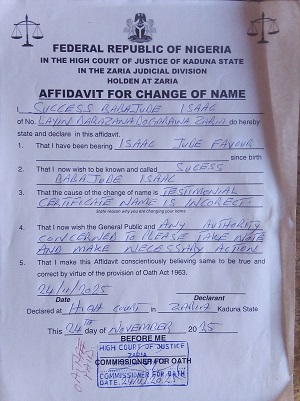 FEDERAL REPUBLIC OF NIGERIA
IN THE HIGH COURT OF JUSTICE OF KADUNA STATE
IN THE ZARIA JUDICIAL DIVISION
HOLDEN AT ZARIA
AFFIDAVIT FOR CHANGE OF NAME
I SUCCESS BABAJUDE ISAAC
of No. LAYIN DOGARAWA ZARIA do hereby
state and declare in this affidavit.
1. That I have been bearing ISAAC JUDE FAVOUR
since birth
2. That I now wish to be known and called SUCESS
BABAJUDE ISAAC
3. That the cause of the change of name is TESTIMONIAL
CERTIFICATE NAME IS INCORECT
State reason why you are changing your name
4. That I now wish the General Public and ANY AUTHORITY
CONCERNED TO PLEASE TAKE NOTE
AND MAKE NECESSARY ACTION
5. That I make this Affidavit conscientiously believing same to be true and
correct by virtue of the provision of Oath Act 1963.
24/11/2025
Date Declarant
Declared at HIGH COURT in ZARIA Kaduna State
This 24TH day of NOVEMBER 2025
BEFORE ME
HIGH COURT OF JUSTICE
ZARIA
COMMISSIONER FOR OATH
COMMISSIONER FOR OATH
DATE: